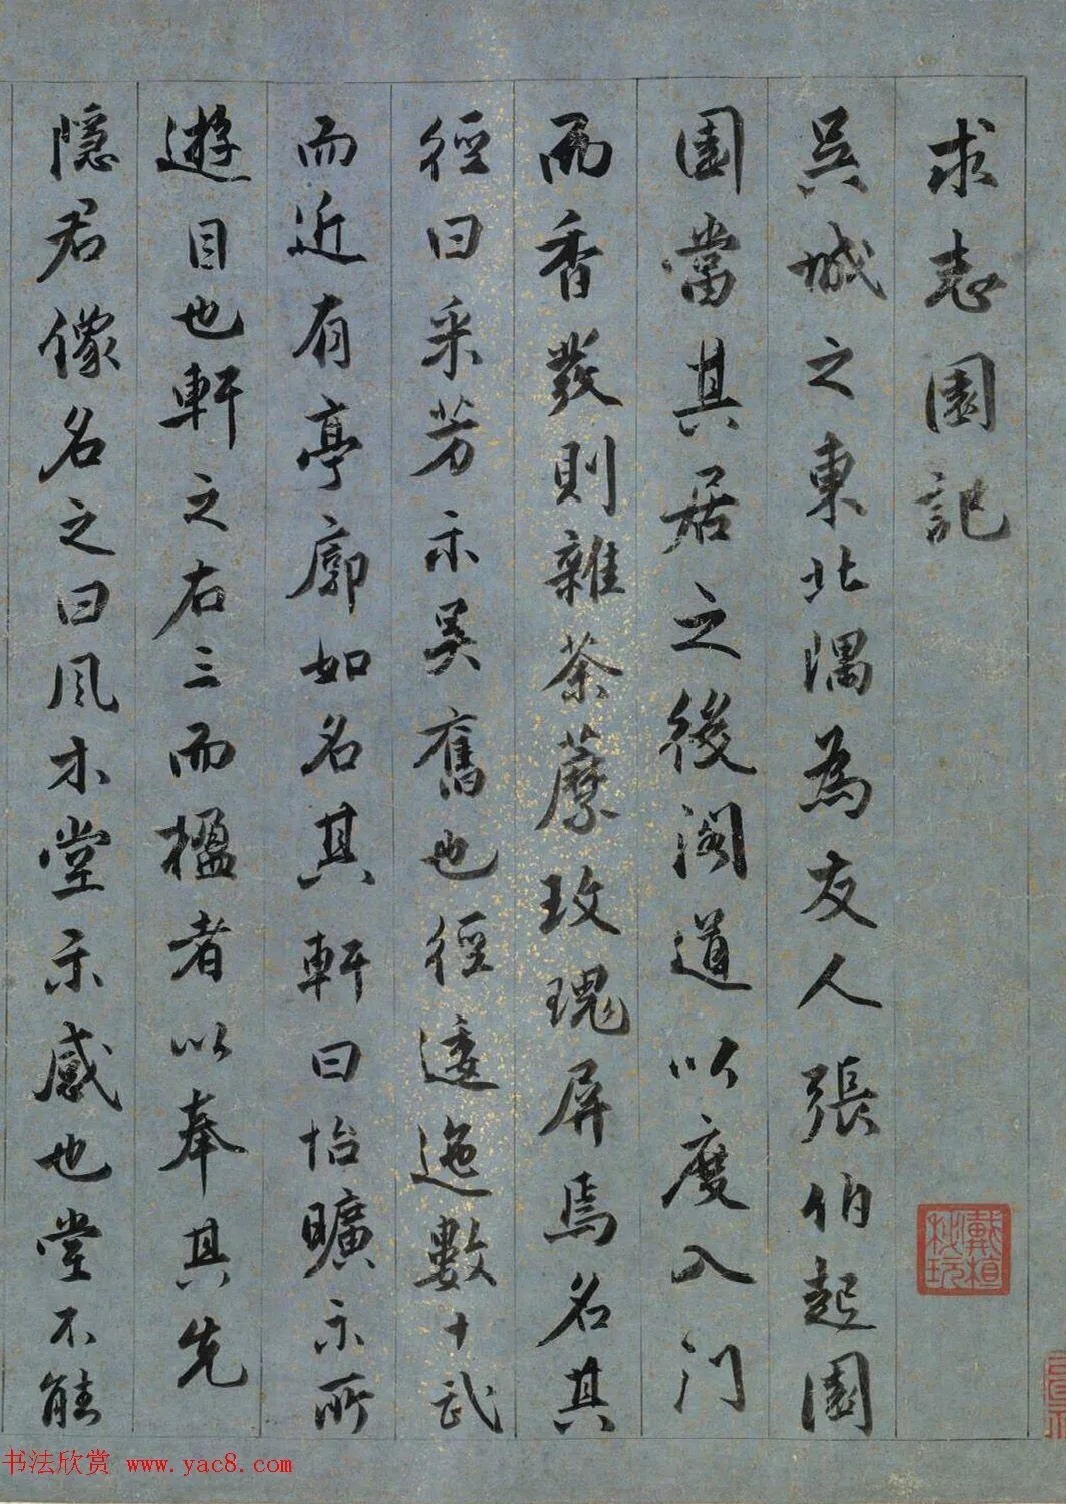 求志園記
吴城之東北隅為友人張伯起園
園當其居之後閣道以度入門
而香發則雜荼蘼玫瑰屏焉名其
徑曰采芳示吴舊也徑逶迤數十武
而近有亭廓如名其軒曰怡曠示所
遊目也軒之右三而楹者以奉其先
隱君像名之曰风木堂示感也堂不能
戴植
秘玩
书法欣赏 www.yac8.com